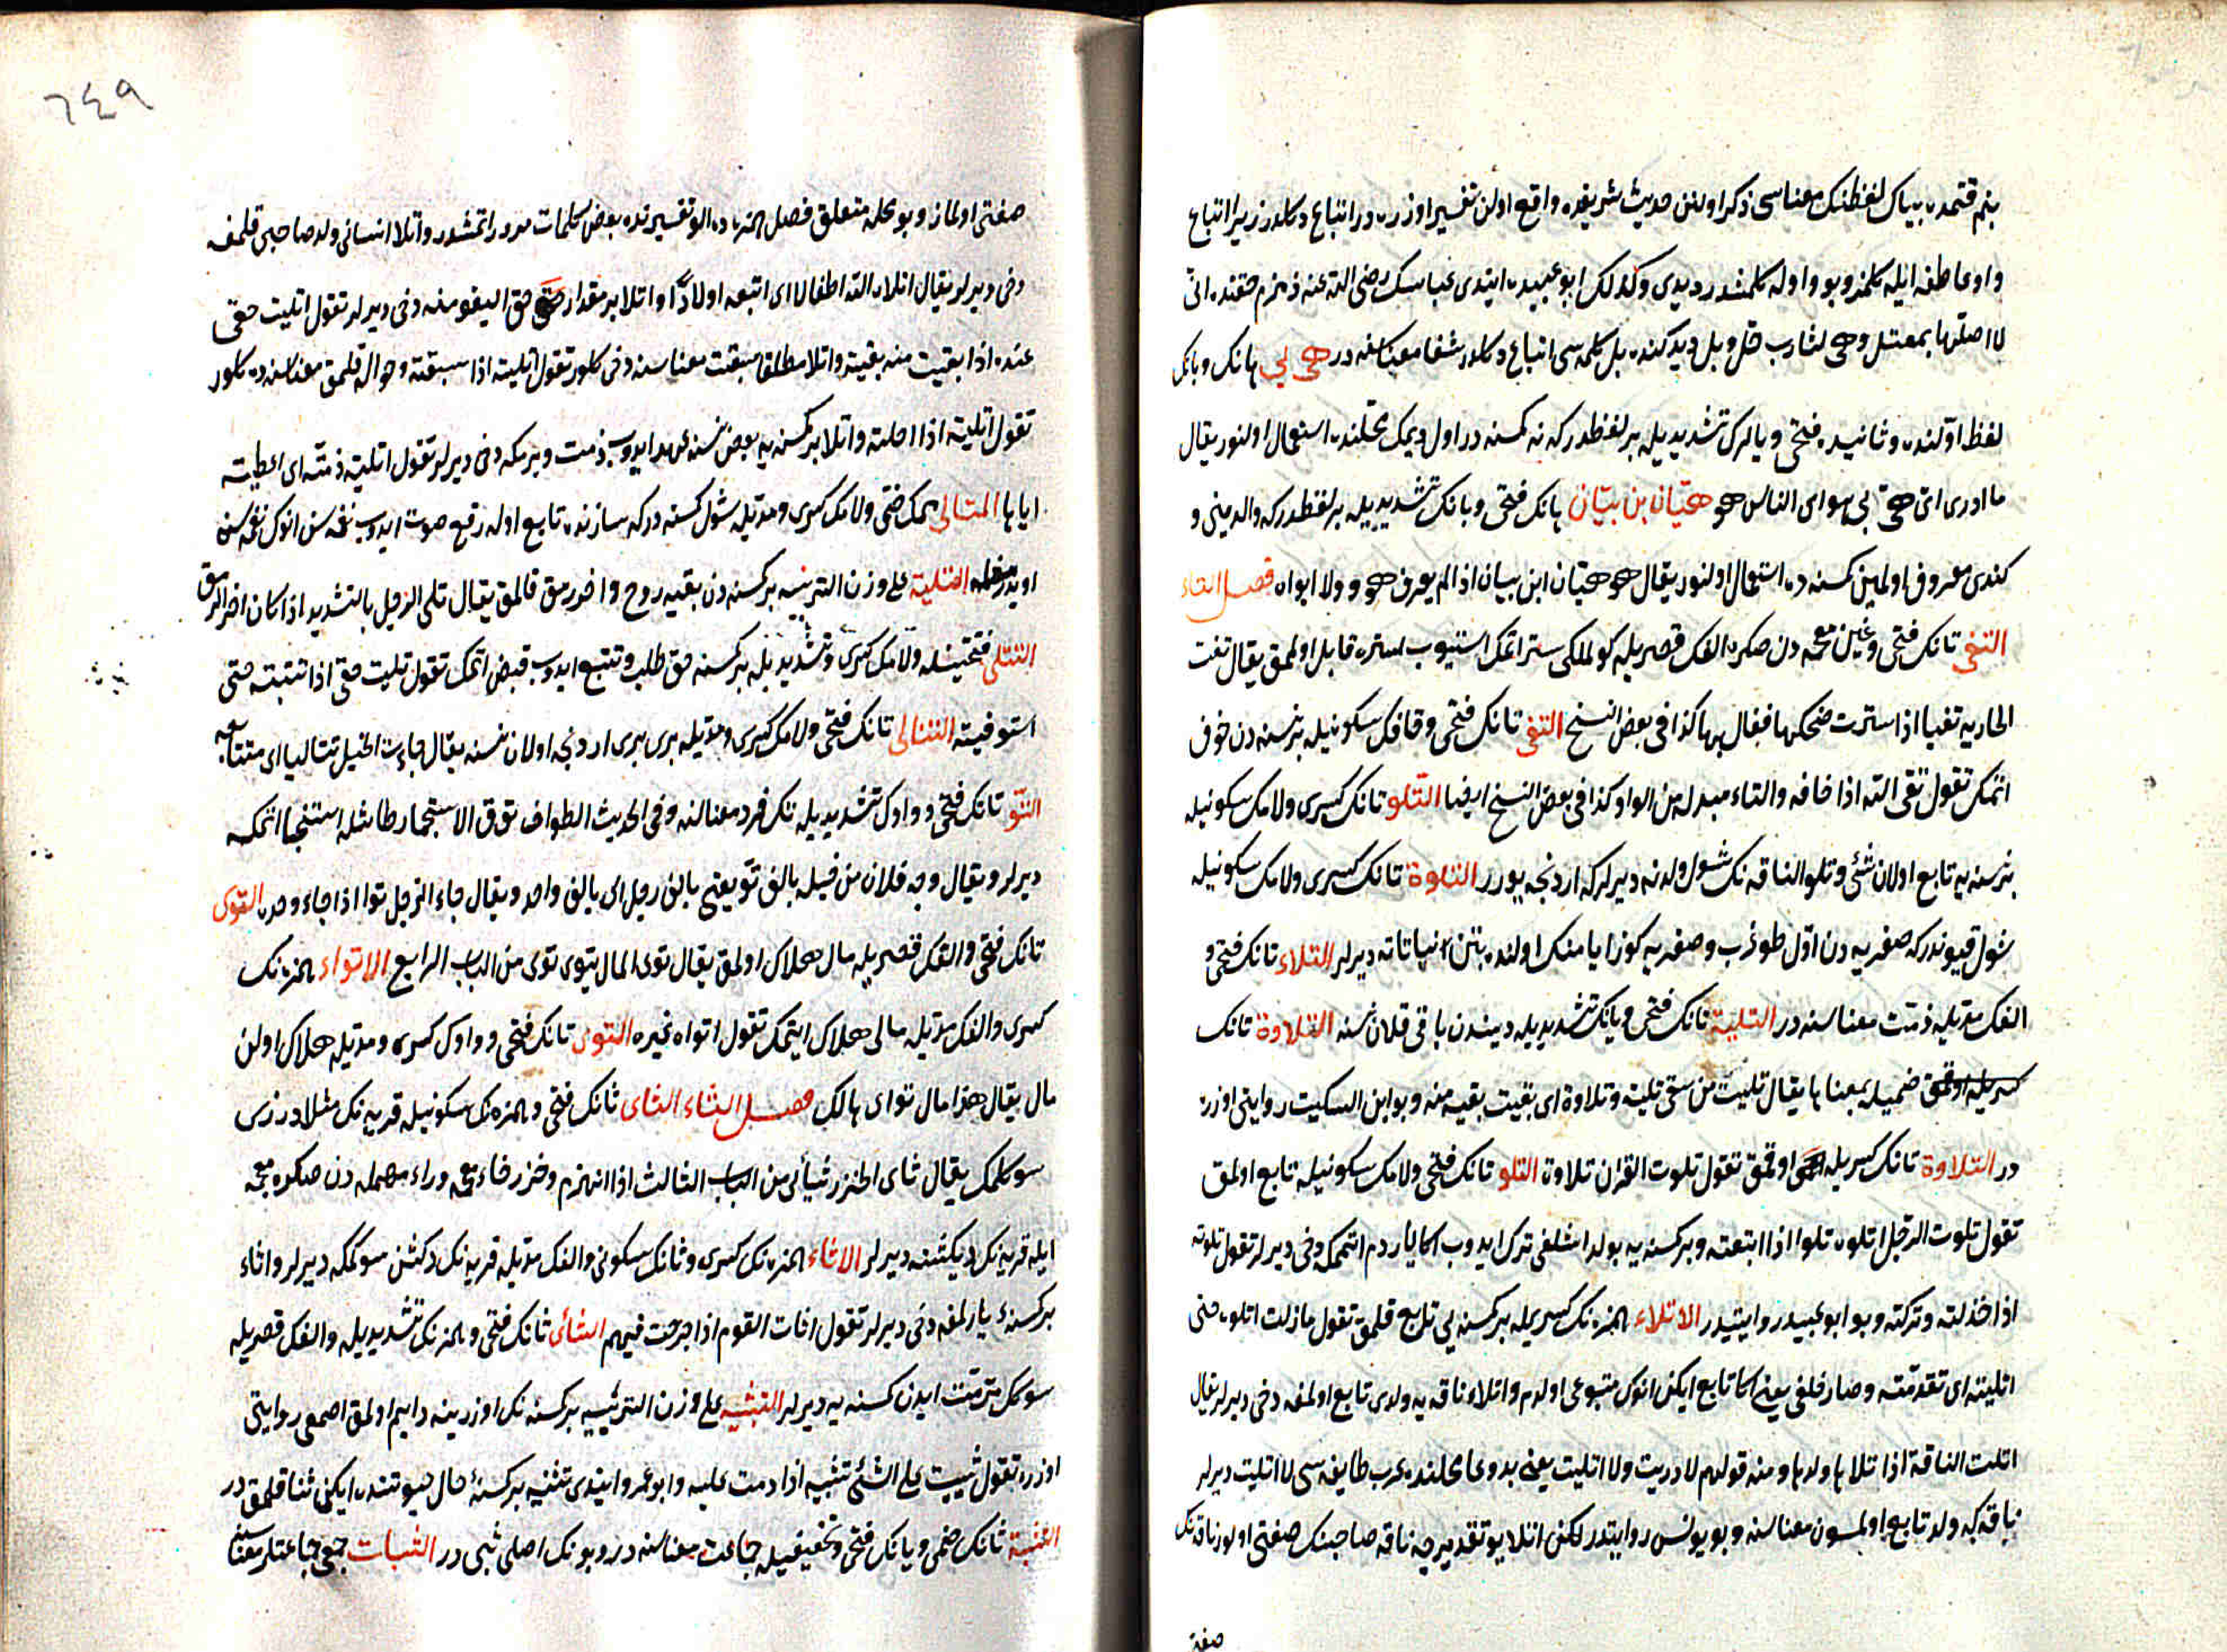 بنم قتمده بياك لفظنك معناسى ذكر اولنن حديث شريفده واقع اولن تفسير اوزره در اتباع دكلدر زيرا اتباع
واو عاطفه ايله كلمز وبو واوله كلمشدر ديدى وكذلك ابو عبيده ايتدى عباسك رضى الله عنه زمزم حقنده انى
لا احلها بمغتسل وهى لشارب حل وبل ديدكنده بل كلمه سى اتباع دكلدر شفا معناسنه در هى بى هانك وبانك
لفظ اولنده وثانيده فتحى ويالرك تشديديله بر لفظدر كه نه كمسنه در اول ديمك محلنده استعمال اولنور يقال
ما ادرى اى هى بى هو اى الناس هو هيان بن بيان هانك فتحى ويانك تشديديله بر لفظدر كه والدينى و
كندى معروف اولمين كمسنه ده استعمال اولنور يقال هو هيان ابن بيان اذا لم يعرف هو ولا ابواه فصل التاء
التغى تانك فتحى وغين معجمه دن صكره الفك قصريله كولمكى ستر اتمك استيوب ستره قابل اولمق يقال تغت
الجاريه تغيا اذا سترت ضحكها فغالبها كذا فى بعض النسخ التقى تانك فتحى وقافك سكونيله بر نسنه دن خوف
اتمك تقول تقى الله اذا خافه والتاء مبدله من الواو كذا فى بعض النسخ ايضا التلو تانك كسرى ولامك سكونيله
بر نسنه يه تابع اولان شئ وتلو الناقه نك شول ولدنه ديرلر كه اردنجه يورر التلوة تانك كسرى ولامك سكونيله
شول قيوندر كه صفريه دن اول طوغرب وصفريه كوز ايامنك اولنده بتن نباتاته ديرلر التلاء تانك فتحى و
الفك مديله ذمت معناسنه در التلية تانك فتحى ويانك تشديديله ديندن باقى قلان نسنه التلاوة تانك
ضميله بمعناها يقال تليت من حقى تلية وتلاوة اى بقيت بقيه منه وبو ابن السكيت روايتى اوزره
در التلاوة تانك كسريله اوقمق تقول تلوت القران تلاوة التلو تانك فتحى ولامك سكونيله تابع اولمق
تقول تلوت الرجل اتلوه تلوا اذا اتبعته وبر كسنه يه بولداشلغى ترك ايدوب اكا يارددم اتممكه دخى ديرلر تقول تلوته
اذا خذلته وتركته وبو ابو عبيد روايتيدر الاتلاء همزه نك كسريله بر كسنه يى تابع قلمق تقول ما زلت اتلوه حتى
اتليته اى تقدمته وصار خلفى يعنى اكا تابع ايكن انوك متبوعى اولدم واتلاء ناقه يه ولدى تابع اولمغه دخى ديرلر يقال
اتلت الناقة اذا تلاها ولدها ومنه قولهم لا دريت ولا اتليت يعنى بد دعا محلنده عرب طايفه سى لا اتليت ديرلر
ناقه كه ولد تابع اولمسون معناسنه وبو يونس روايتيدر لكن اتلا بو تقديرجه ناقه صاحبنك صفتى اولور ناقه نك
صفتى
٦٤٩
صفتى اولماز وبو محله متعلق فصل الهمزه ده الو تفسيرنده بعض كلمات مرور اتمشدر واتلا انسانى ولد صاحبى قلمغه
دخى ديرلر يقال اتلاه الله اطفالا اى اتبعه اولادا واتلا بر مقدار حق اليقومغه دخى ديرلر تقول اتليت حقى
عنده اذا بقيت منه بقية واتلا مطلقا سبقت معناسنه دخى كلور تقول اتليته اذا سبقته وحواله قلمق معناسنه ده كلور
تقول اتليته اذا احلته واتلا بر كمسنه يه بعض نسنه عهد ايدوب ذمت ويرمكه دخى ديرلر تقول اتليته ذمته اى اعطيته
اياها المتالى ممك ضمى ولامك كسرى ومديله شول كسنه در كه سازنده تابع اوله رفع صوت ايدوب نغمه سن انوك نغمه سنه
اويدرمغله التلية على وزن التربيه بر كسنه دن بقيه روح واخر رمق قالمق يقال تلى الرجل بالتشديد اذا كان اخر الرمق
التتلى فتحتينله ولامك كسرى وتشديديله بر كسنه حق طلب وتتبع ايدوب قبض اتمك تقول تليت حقى اذا تتبعته حتى
استوفيته التتالى تانك فتحى ولامك كسرى ومديله برى برى اردنجه اولان نسنه يقال جاءت الخيل تتاليا اى متتابعه
التو تانك فتحى وواوك تشديديله تك فرد معناسنه وفى الحديث الطواف تو والاستجمار طاشله استنجا اتمكه
ديرلر ويقال وجه فلان من خيله بالف تو يعنى بالف رجل اى بالف واحد ويقال جاء الرجل توا اذا جاء وحده التوى
تانك فتحى والفك قصريله مال هلاك اولمق يقال توى المال يتوى توى من الباب الرابع الاتواء همزه نك
كسرى والفك مديله مالى هلاك ايتمك تقول اتواه غيره التوى تانك فتحى وواوك كسرى ومديله هلاك اولن
مال يقال هذا مال تو اى هالك فصل الثاء الثاى ثانك فتحى وهمزه نك سكونيله قربه نك مثلا درزى
سوكلمك يقال ثاى الخرز ثيأى من الباب الثالث اذا انخرم وخرز خاء معجمه وراء مهمله دن صكره معجمه
ايله قربه نك ديكشنه ديرلر الاثاء همزه نك كسرى وثانك سكونى والفك مديله قربه نك دكشن سوكمكه ديرلر واثاء
بر كسنه يارلمغه دخى ديرلر تقول اثات القوم اذا جرحت فيهم الثأى ثانك فتحى وهمزه نك تشديديله والفك قصريله
سوكمك مرمت ايدن كسنه يه ديرلر التثبيه على وزن التربيه بر كسنه نك اوزرينه دايم اولمق اصمعى روايتى
اوزره تقول ثبيت على الشئ تثبيه اذا دمت عليه وابو عمرو ايتدى تثبيه بر كسنه حال حيوتنده ايكن ثنا قلمق در
الثبة ثانك ضمى ويانك فتحى وتخفيفيله جماعت معناسنه در وبونك اصلى ثبى در الثبات جمعى جماعتلر معناسنه